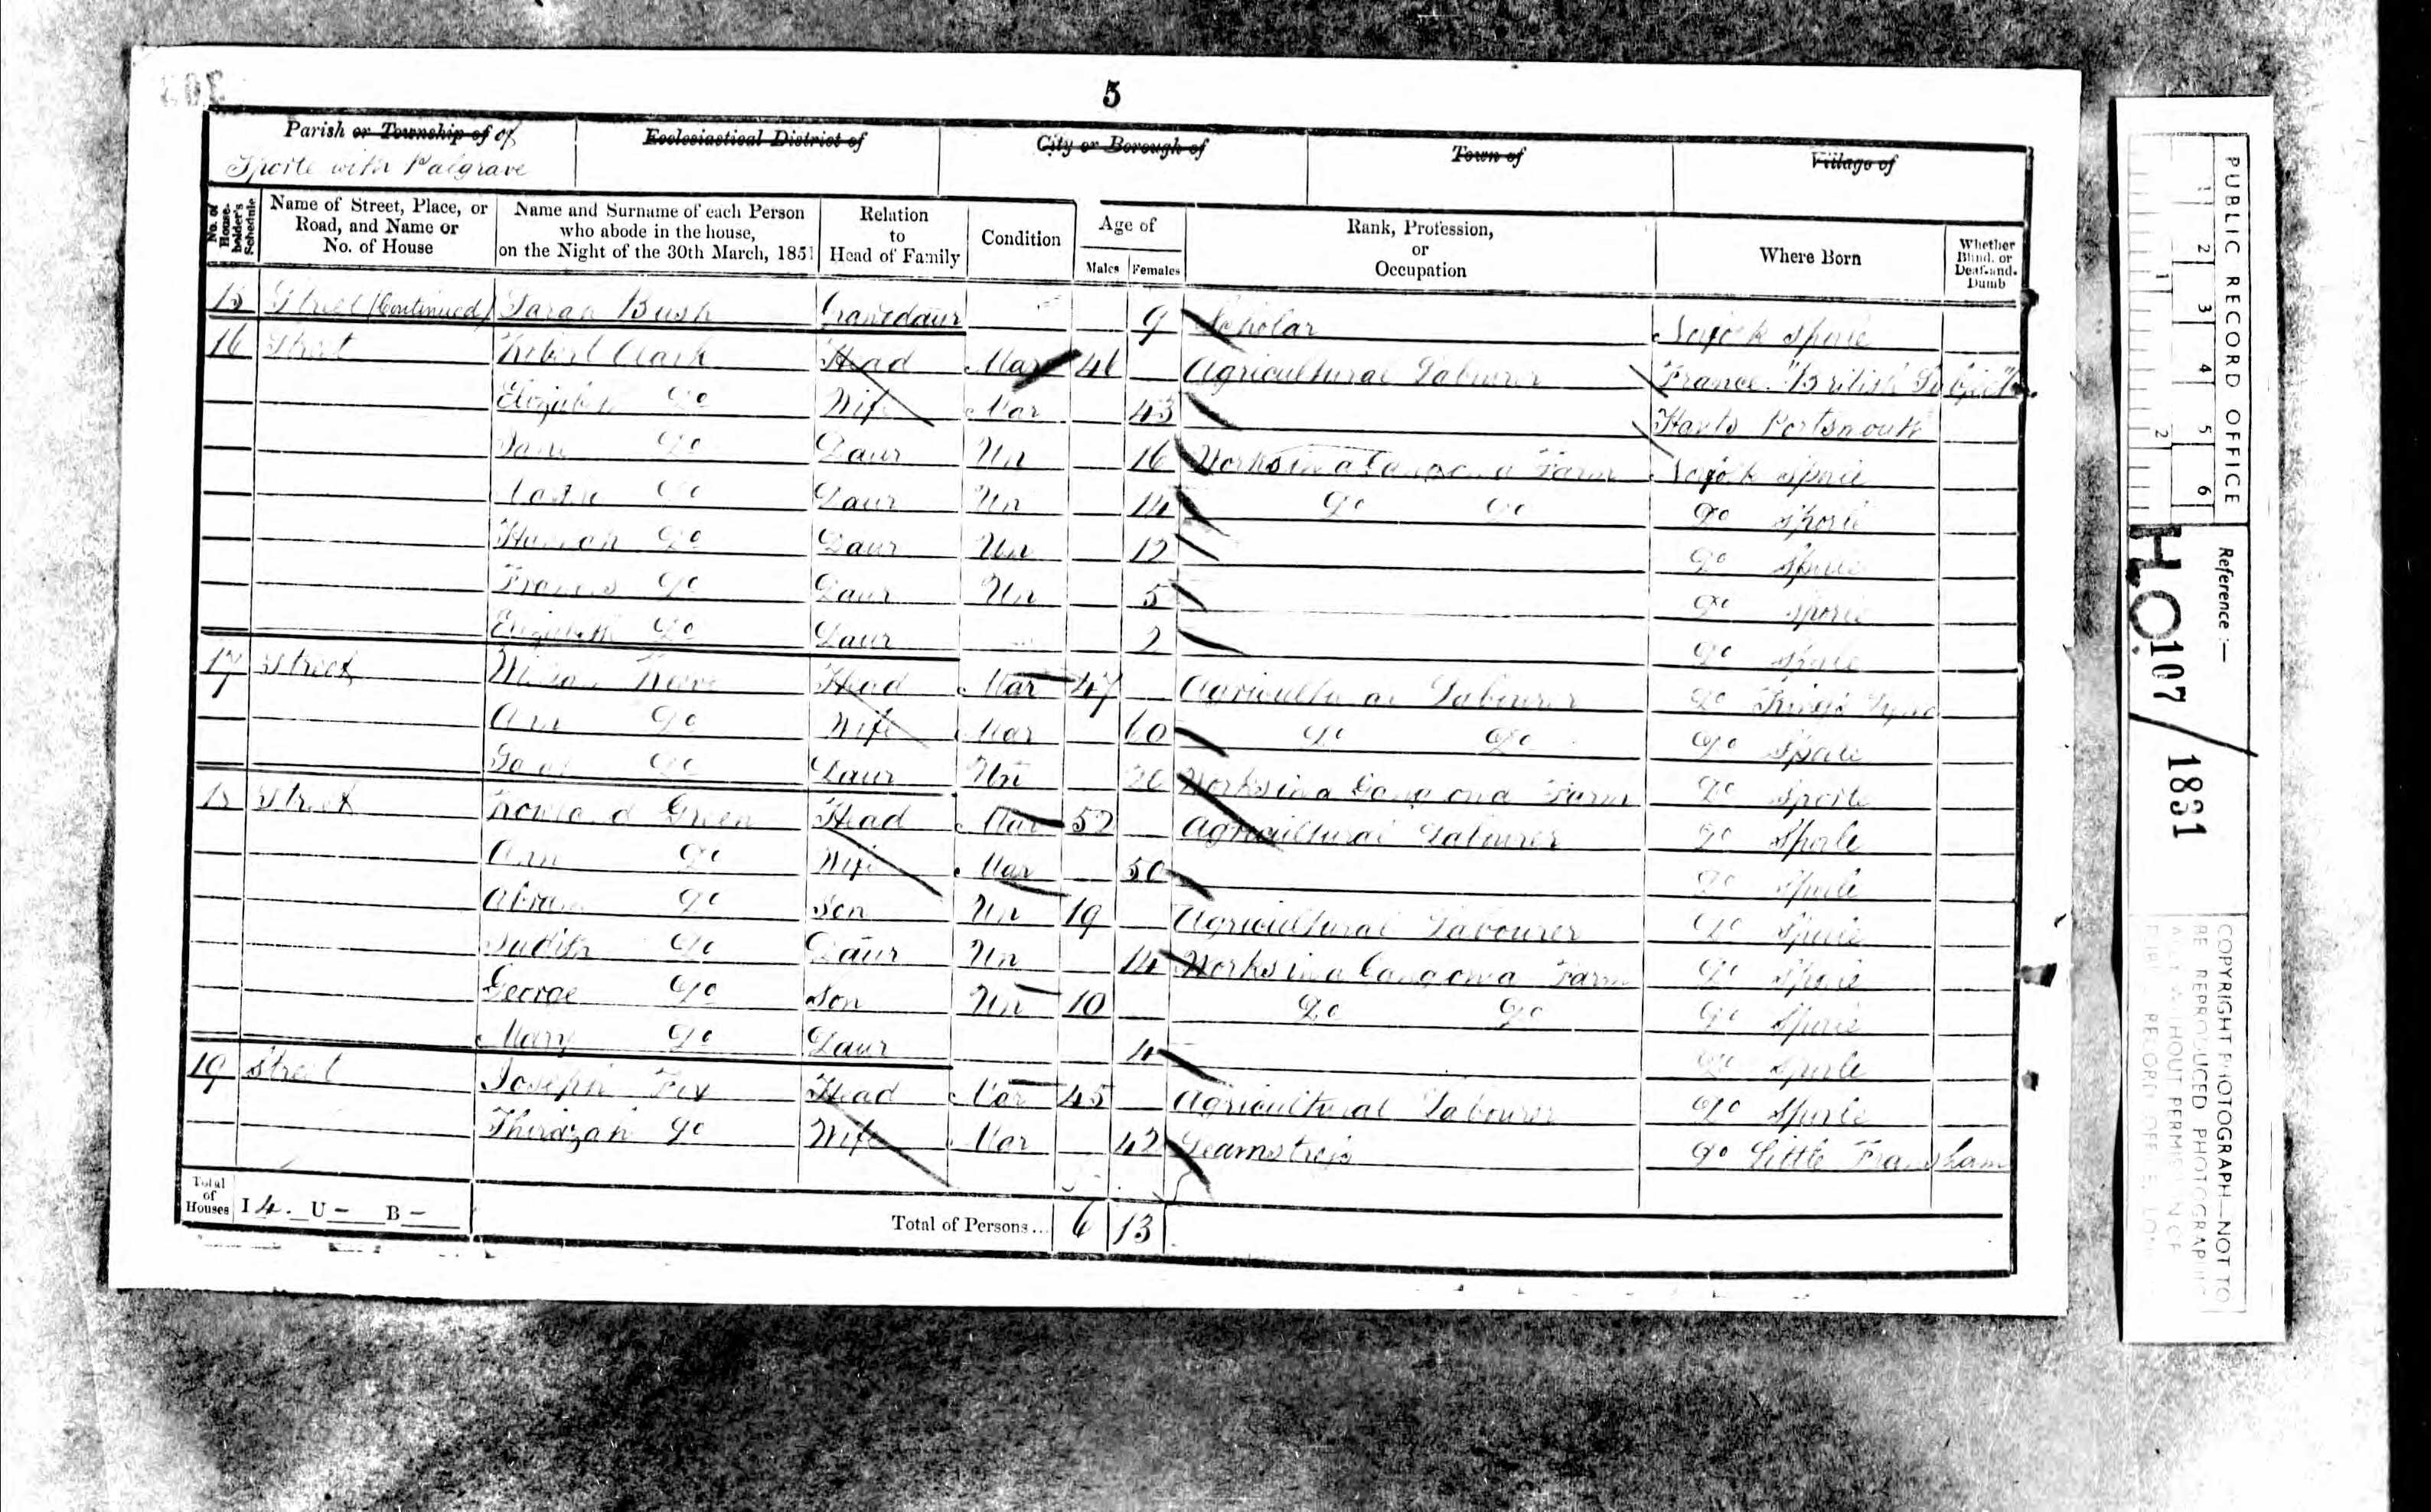 5
Parish or Township of of
Sporle with Palgrave
Ecclesiastical District of
City or Borough of
Town of
Village of
No. of House-holder's Schedule
Name of Street, Place, or Road, and Name or No. of House
Name and Surname of each Person who abode in the house, on the Night of the 30th March, 1851
Relation to Head of Family
Condition
Age of
Males Females
Rank, Profession, or Occupation
Where Born
Whether Blind, or Deaf-and-Dumb
15 Street (Continued) Sarah Bush Granddaur 9 Scholar Norfolk Sporle
16 Street Robert Clark Head Mar 46 Agricultural Labourer France "British Subject"
Elizabeth Do Wife Mar 43 Hants Portsmouth
Jane Do Daur Un 16 Works in a Gang on a Farm Norfolk Sporle
Do Daur Un 14 Do Do Do Sporle
Hannah Do Daur Un 12 Do Sporle
Frances Do Daur Un 5 Do Sporle
Elizabeth Do Daur 2 Do Sporle
17 Street William Head Mar 47 Agricultural Labourer Do King's Lynn
Ann Do Wife Mar 60 Do Do Do Sporle
Do Daur Un 20 Works in a Gang on a Farm Do Sporle
18 Street Rowland Green Head Mar 52 Agricultural Labourer Do Sporle
Ann Do Wife Mar 50 Do Sporle
Abram Do Son Un 19 Agricultural Labourer Do Sporle
Judith Do Daur Un 14 Works in a Gang on a Farm Do Sporle
George Do Son Un 10 Do Do Do Sporle
Mary Do Daur 4 Do Sporle
19 Street Joseph Fix Head Mar 45 Agricultural Labourer Do Sporle
Thirazah Do Wife Mar 42 Seamstress Do Little Fransham
Total of Houses I 4. U - B -
Total of Persons... 6 13
PUBLIC RECORD OFFICE
1 2 3 4 5 6
1 2
Reference :-
HO 107 / 1831
COPYRIGHT PHOTOGRAPH—NOT TO
BE REPRODUCED PHOTOGRAPHIC